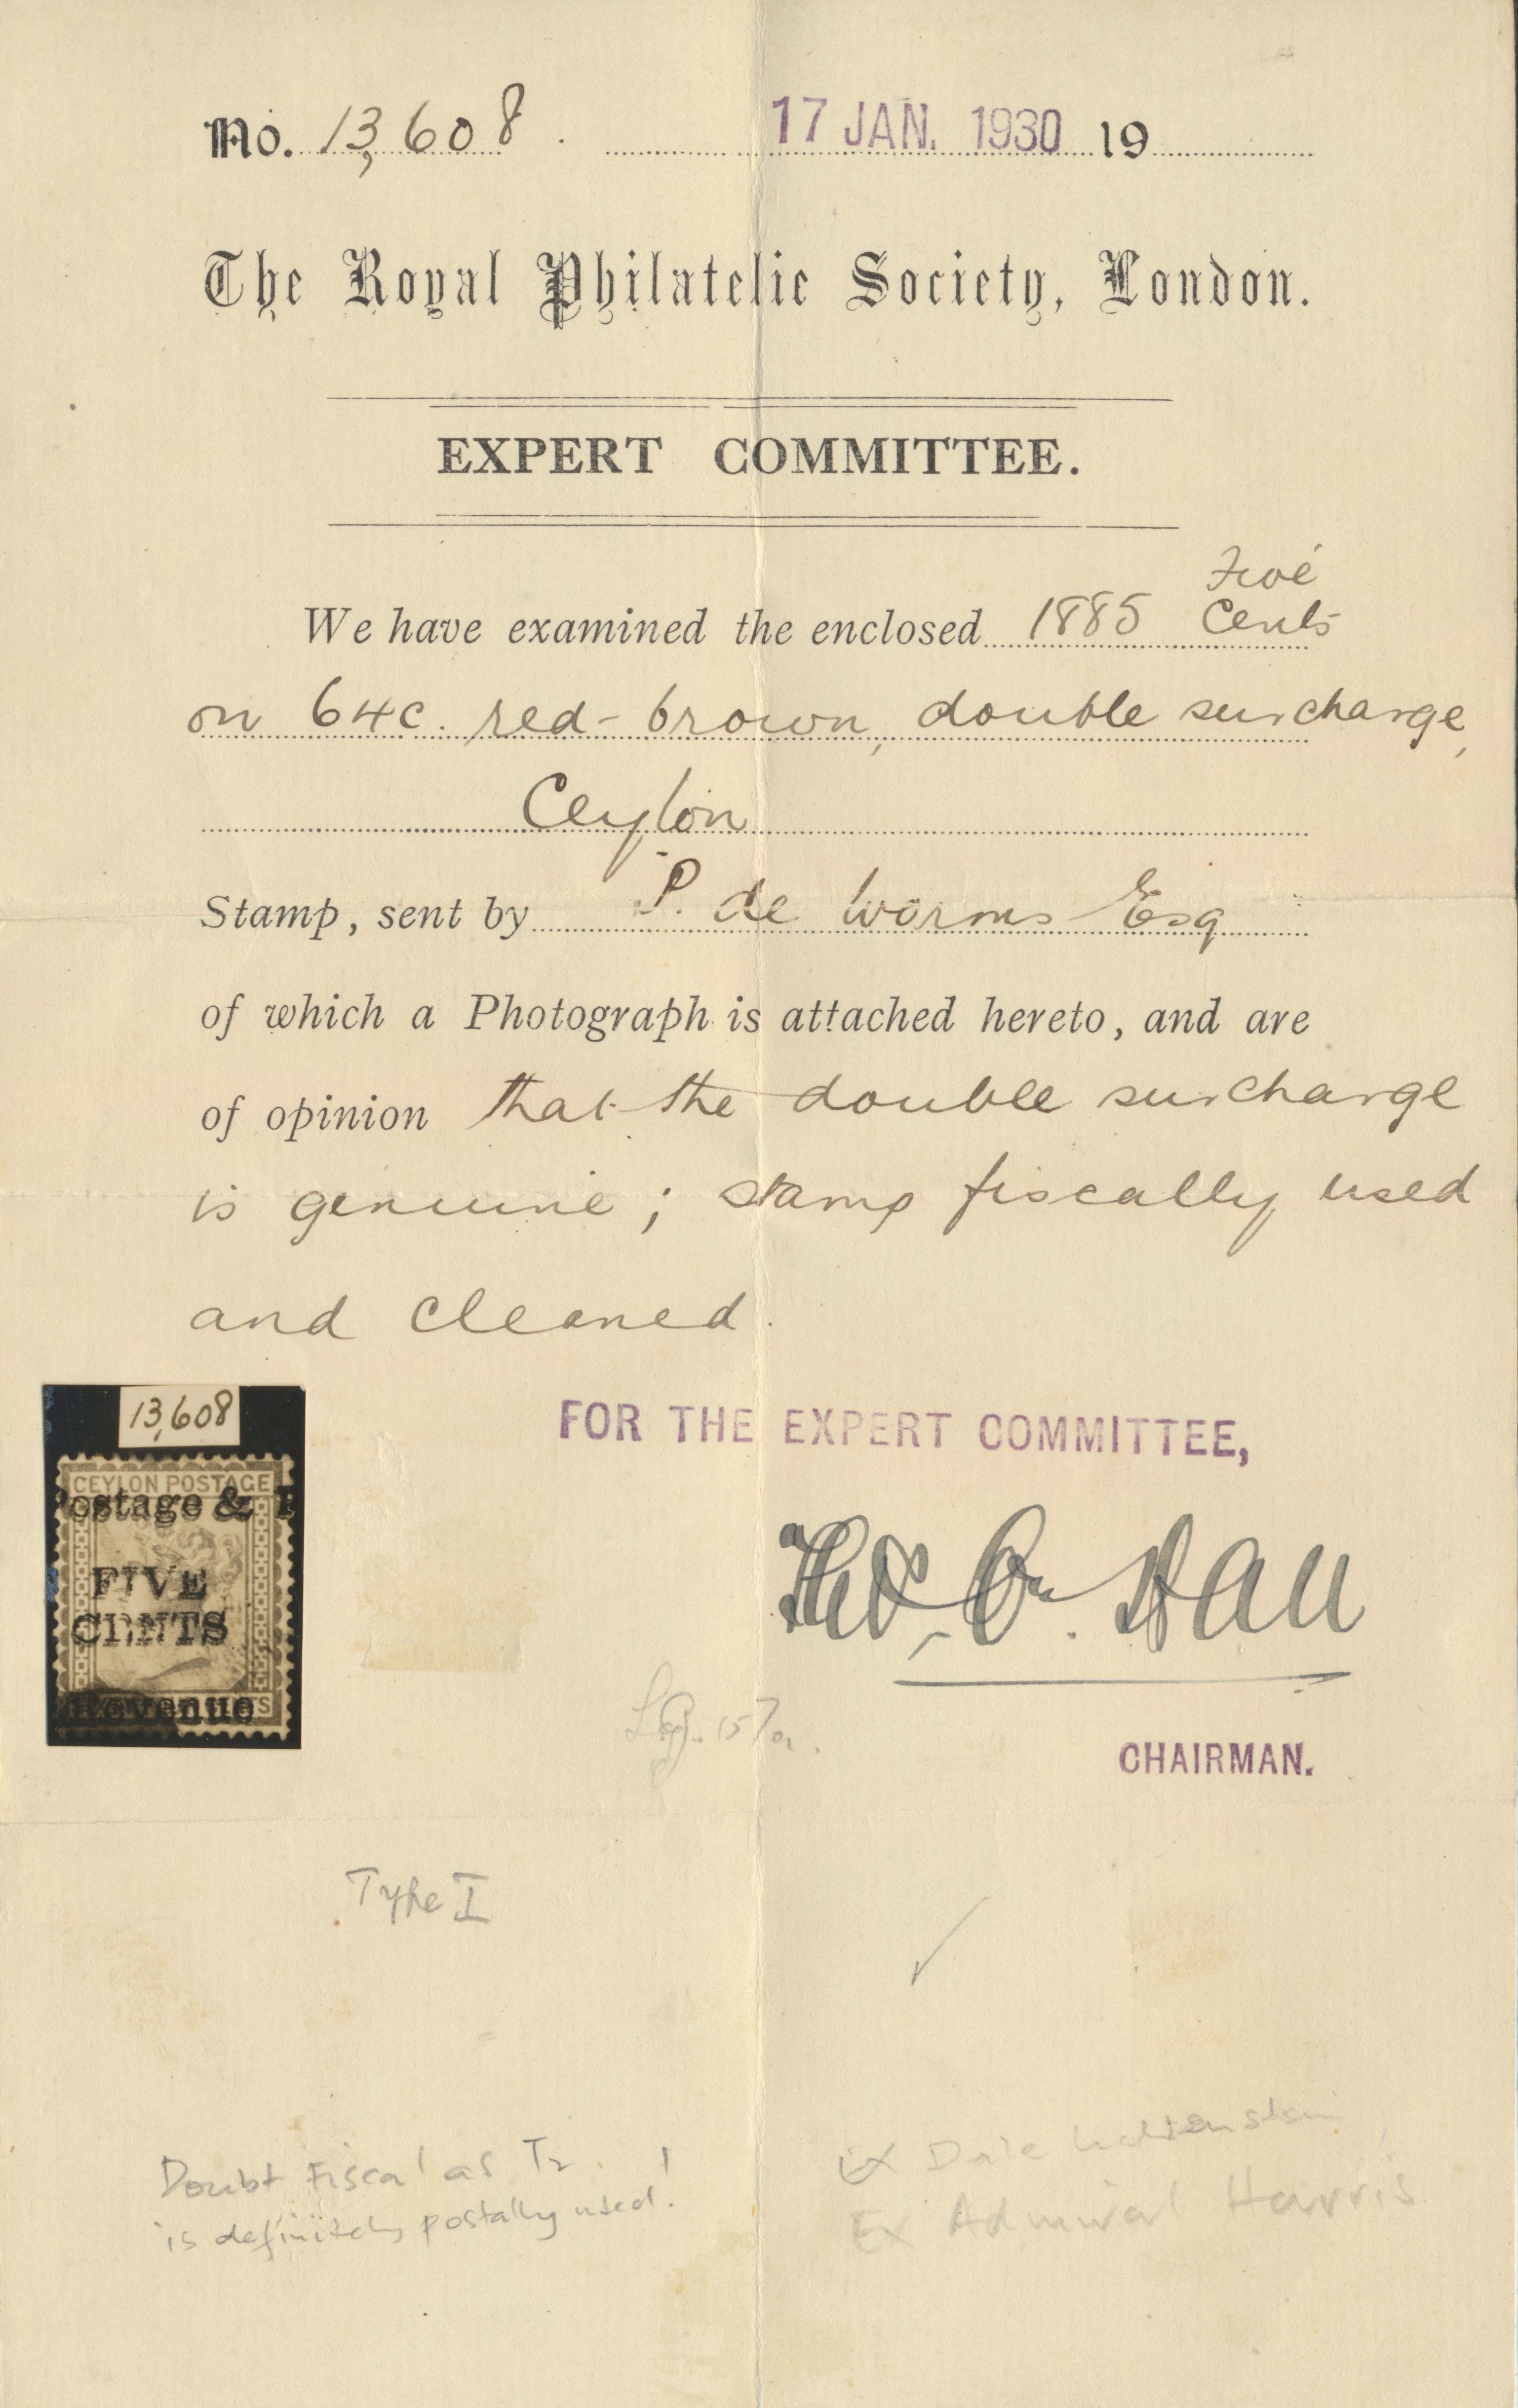 No. 13,608. 17 JAN. 1930 19
The Royal Philatelic Society, London.
EXPERT COMMITTEE.
We have examined the enclosed 1885 Five Cents
on 64c. red-brown, double surcharge,
Ceylon
Stamp, sent by P. de Worms Esq
of which a Photograph is attached hereto, and are
of opinion that the double surcharge
is genuine; stamp fiscally used
and cleaned.
13,608
CEYLON POSTAGE
Postage & R
FIVE
CENTS
Revenue
FOR THE EXPERT COMMITTEE,
Hall
CHAIRMAN.
157a.
Type I
Doubt Fiscal as T2
is definitely postally used!
Ex Dale Lichtenstein
Ex Admiral Harris